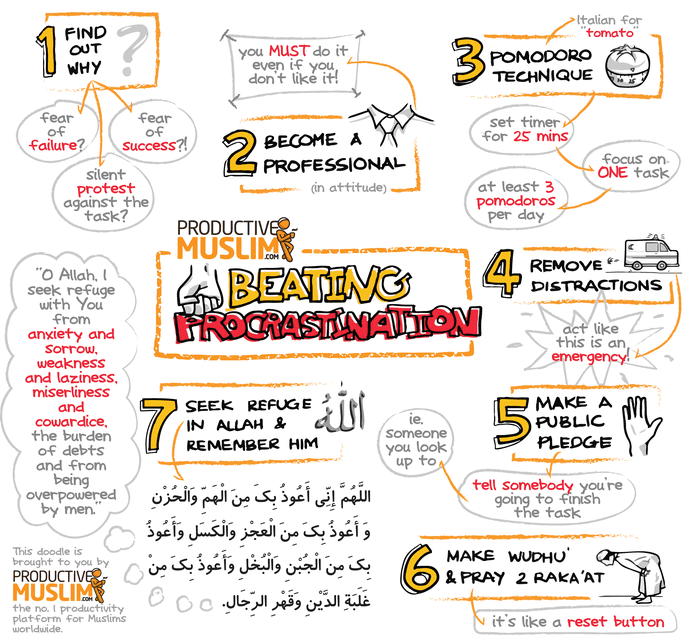 1 FIND
OUT
WHY ?
fear
of
failure?
fear
of
success?!
silent
protest
against the
task?
you MUST do it
even if you
don't like it!
2 BECOME A
PROFESSIONAL
(in attitude)
Italian for
"tomato"
3 POMODORO
TECHNIQUE
set timer
for 25 mins
focus on
ONE task
at least 3
pomodoros
per day
PRODUCTIVE
MUSLIM.COM
BEATING
PROCRASTINATION
4 REMOVE
DISTRACTIONS
act like
this is an
emergency!
5 MAKE A
PUBLIC
PLEDGE
ie.
someone
you look
up to
tell somebody you're
going to finish
the task
6 MAKE WUDHU'
& PRAY 2 RAKA'AT
it's like a reset button
7 SEEK REFUGE
IN ALLAH &
REMEMBER HIM
الله
اللَّهُمَّ إِنِّي أَعُوذُ بِكَ مِنَ الْهَمِّ وَالْحُزْنِ
وَ أَعُوذُ بِكَ مِنَ الْعَجْزِ وَالْكَسَلِ وَأَعُوذُ
بِكَ مِنَ الْجُبْنِ وَالْبُخْلِ وَأَعُوذُ بِكَ مِنْ
غَلَبَةِ الدَّيْنِ وَقَهْرِ الرِّجَالِ.
"O Allah, I
seek refuge
with You
from
anxiety and
sorrow,
weakness
and laziness,
miserliness
and
cowardice,
the burden
of debts
and from
being
overpowered
by men."
This doodle is
brought to you by
PRODUCTIVE
MUSLIM.COM
the no. 1 productivity
platform for Muslims
worldwide.